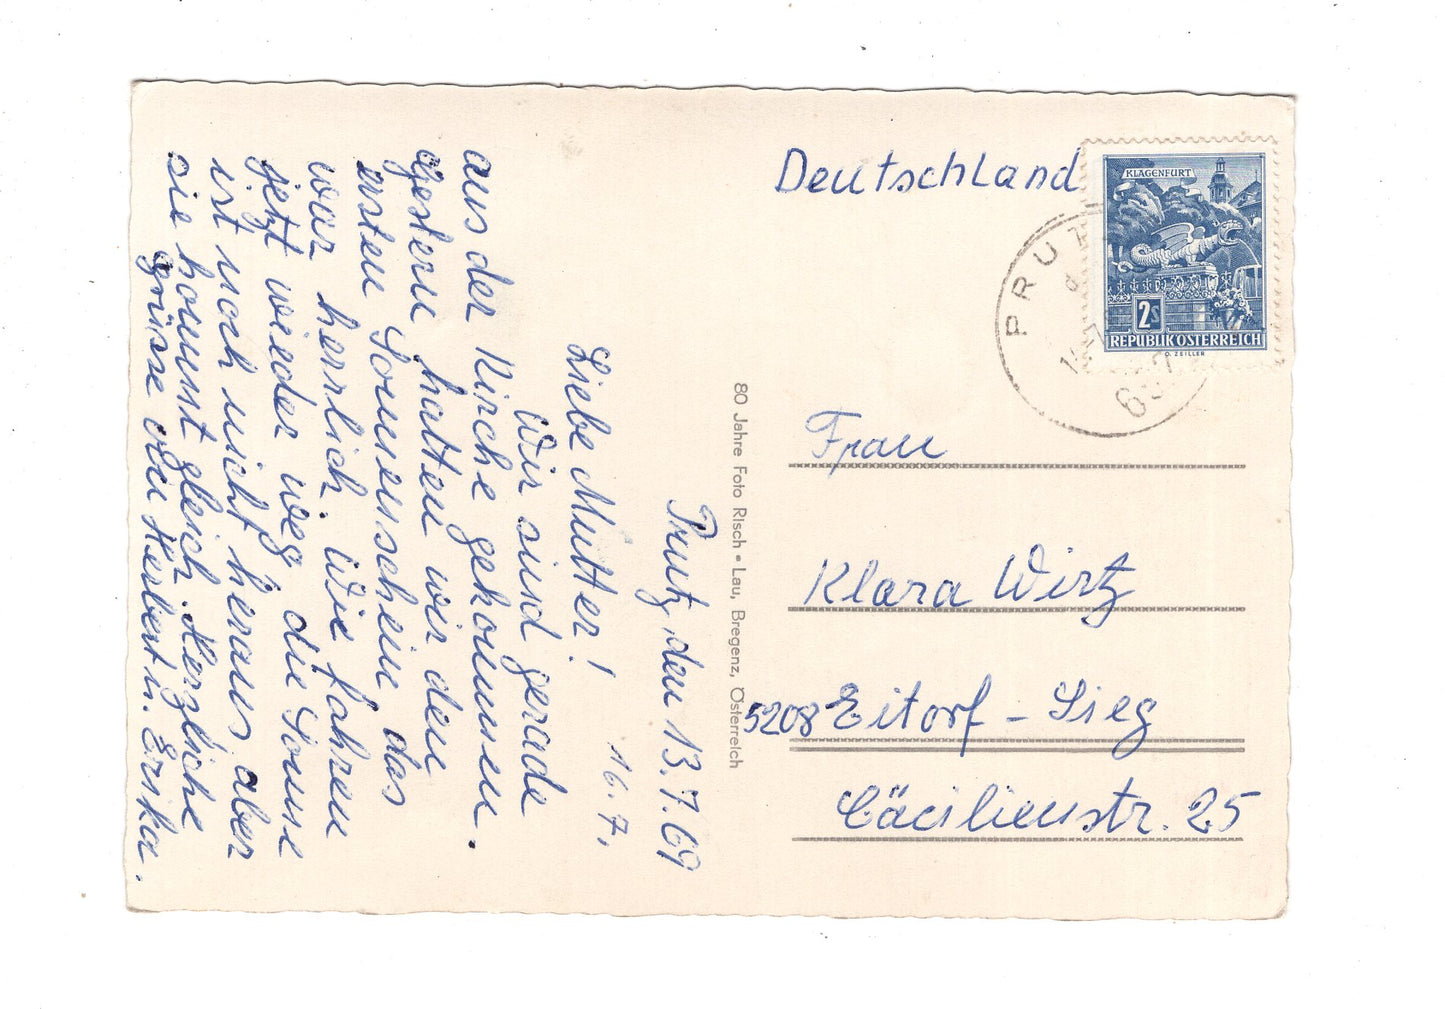 Prutz, den 13.7.69
16.7.
Liebe Mutter!
Wir sind gerade
aus der Kirche gekommen.
Gestern hatten wir den
ersten Sonnenschein, das
war herrlich. Wie fahren
jetzt wieder weg, die Sonne
ist noch nicht heraus aber
sie kommt gleich. Herzliche
Grüsse von Herbert u. Erika.
80 Jahre Foto Risch • Lau, Bregenz, Österreich
Deutschland
KLAGENFURT
2S
REPUBLIK ÖSTERREICH
O. ZEILLER
PRUT
Frau
Klara Wirtz
5208 Eitorf - Sieg
Cäcilienstr. 25